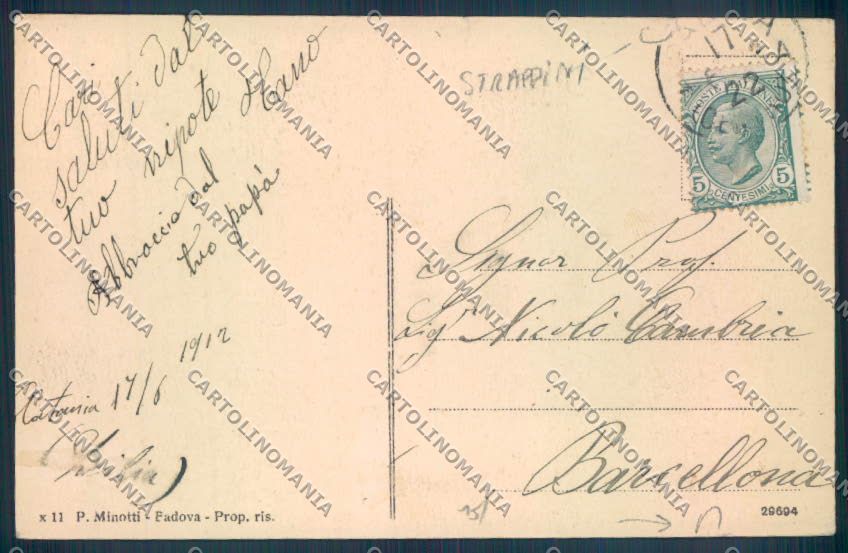 Cari
saluti dal
tuo nipote
Abbraccio dal
tuo papà
Catania 17/6 1912
(Sicilia)
STRAPPINI
POSTE ITALIANE
5 5
CENTESIMI
Signor Prof
Sig Nicolò Cambria
Barcellona
x 11 P. Minotti - Padova - Prop. ris.
29694
CARTOLINOMANIA